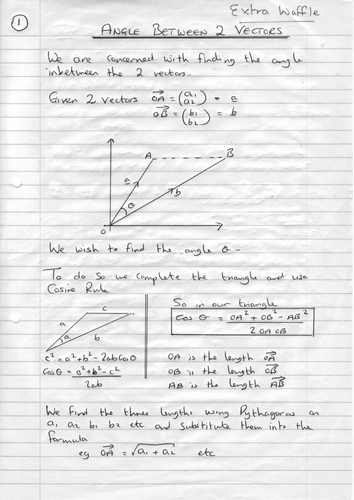 Extra Waffle
1
ANGLE BETWEEN 2 VECTORS
We are concerned with finding the angle
inbetween the 2 vectors.
Given 2 vectors OA = (a1 a2) = a
OB = (b1 b2) = b
A
B
a
b
θ
O
We wish to find the angle θ -
To do so we complete the triangle and use
Cosine Rule
c
a
θ
b
c² = a² + b² - 2ab Cos θ
Cos θ = a² + b² - c²
2ab
So in our triangle
Cos θ = OA² + OB² - AB²
2 OA OB
OA is the length OA
OB is the length OB
AB is the length AB
We find the three lengths using Pythagoras on
a1 a2 b1 b2 etc and substitute them into the
formula
eg OA = √a1 + a2 etc